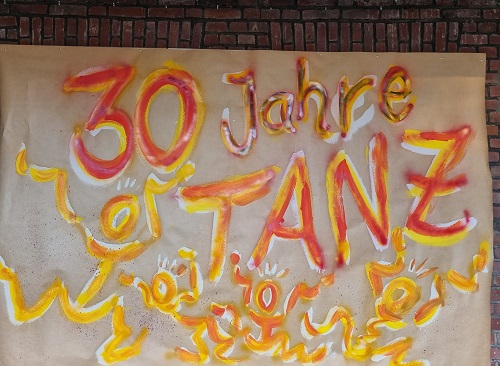 30 Jahre
TANZ